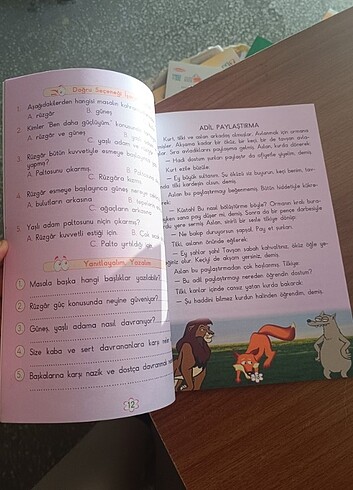 Doğru Seçeneği
1. Aşağıdakilerden hangisi masalın
A. rüzgâr B. güneş
2. Kimler "Ben daha güçlüyüm."
A. rüzgâr ve güneş B.
C. yaşlı adam ve
3. Rüzgâr bütün kuvvetiyle esmeye başlayınca
yapmış?
A. Paltosunu çıkarmış.
C. Rüzgâra
4. Rüzgâr esmeye başlayınca güneş nereye
A. bulutların arkasına
C. ağaçların arkasına
5. Yaşlı adam paltosunu niçin çıkarmış?
A. Rüzgâr kuvvetli estiği için. B. Çok
C. Palto yırtıldığı
Yanıtlayalım, Yazalım
1 Masala başka hangi başlıklar yazılabilir?
2 Rüzgâr güç konusunda neyine güveniyor?
3 Güneş, yaşlı adama nasıl davranıyor?
4 Size kaba ve sert davrananlara karşı
5 Başkalarına karşı nazik ve dostça davranmak
12
ADİL PAYLAŞTIRMA
Kurt, tilki ve aslan arkadaş olmuşlar. Avlanmak için ormana
Akşama kadar bir öküz, bir keçi, bir de tavşan
Sıra avladıklarını paylaşmaya gelmiş. Aslan, kurda dönerek:
— Hadi dostum şunları paylaştır da afiyetle yiyelim, demiş.
Kurt ezile büzüle:
— Ey büyük sultanım. Şu öküz siz buyurun, keçi benim,
tilki kardeşin olsun, demiş.
Aslan bu paylaştırmayı beğenmemiş. Bütün hiddetiyle
— Küstah! Bu nasıl bölüştürme böyle? Ormanın kralı
sana pay düşer mi, demiş. Sonra da bir pençe darbesiyle
yere sermiş. Aslan, sinirli bir sesle tilkiye dönüp:
— Ne bakıp duruyorsun şapşal. Pay et şunları.
Tilki, aslanın önünde eğilerek:
— Ey şahlar şahı! Tavşan sabah kahvaltınız, öküz öğle
olsun. Keçiyi de akşam yersiniz, demiş.
Aslan bu paylaştırmadan çok hoşlanmış. Tilkiye:
— Bu adil paylaştırmayı nereden öğrendin dostum?
Tilki, karlar içinde cansız yatan kurda bakarak:
— Şu haddini bilmez kurdun halinden öğrendim, demiş.